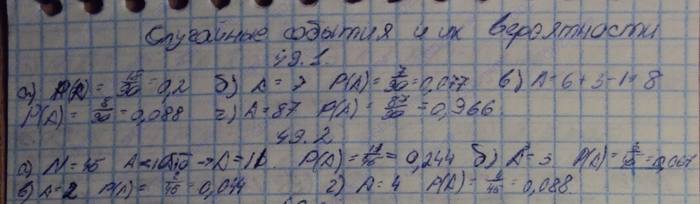 Случайные события и их вероятности
49.1
а) P(A) = 18/90 = 0,2 б) A = 7 P(A) = 7/90 = 0,077 в) A = 6 + 3 - 1 = 8
P(A) = 8/90 = 0,088 г) A = 87 P(A) = 87/90 = 0,966
49.2
а) N = 45 A = 11 P(A) = 11/45 = 0,244 б) A = 3 P(A) = 3/45 = 0,067
в) A = 2 P(A) = 2/45 = 0,044 г) A = 4 P(A) = 4/45 = 0,088